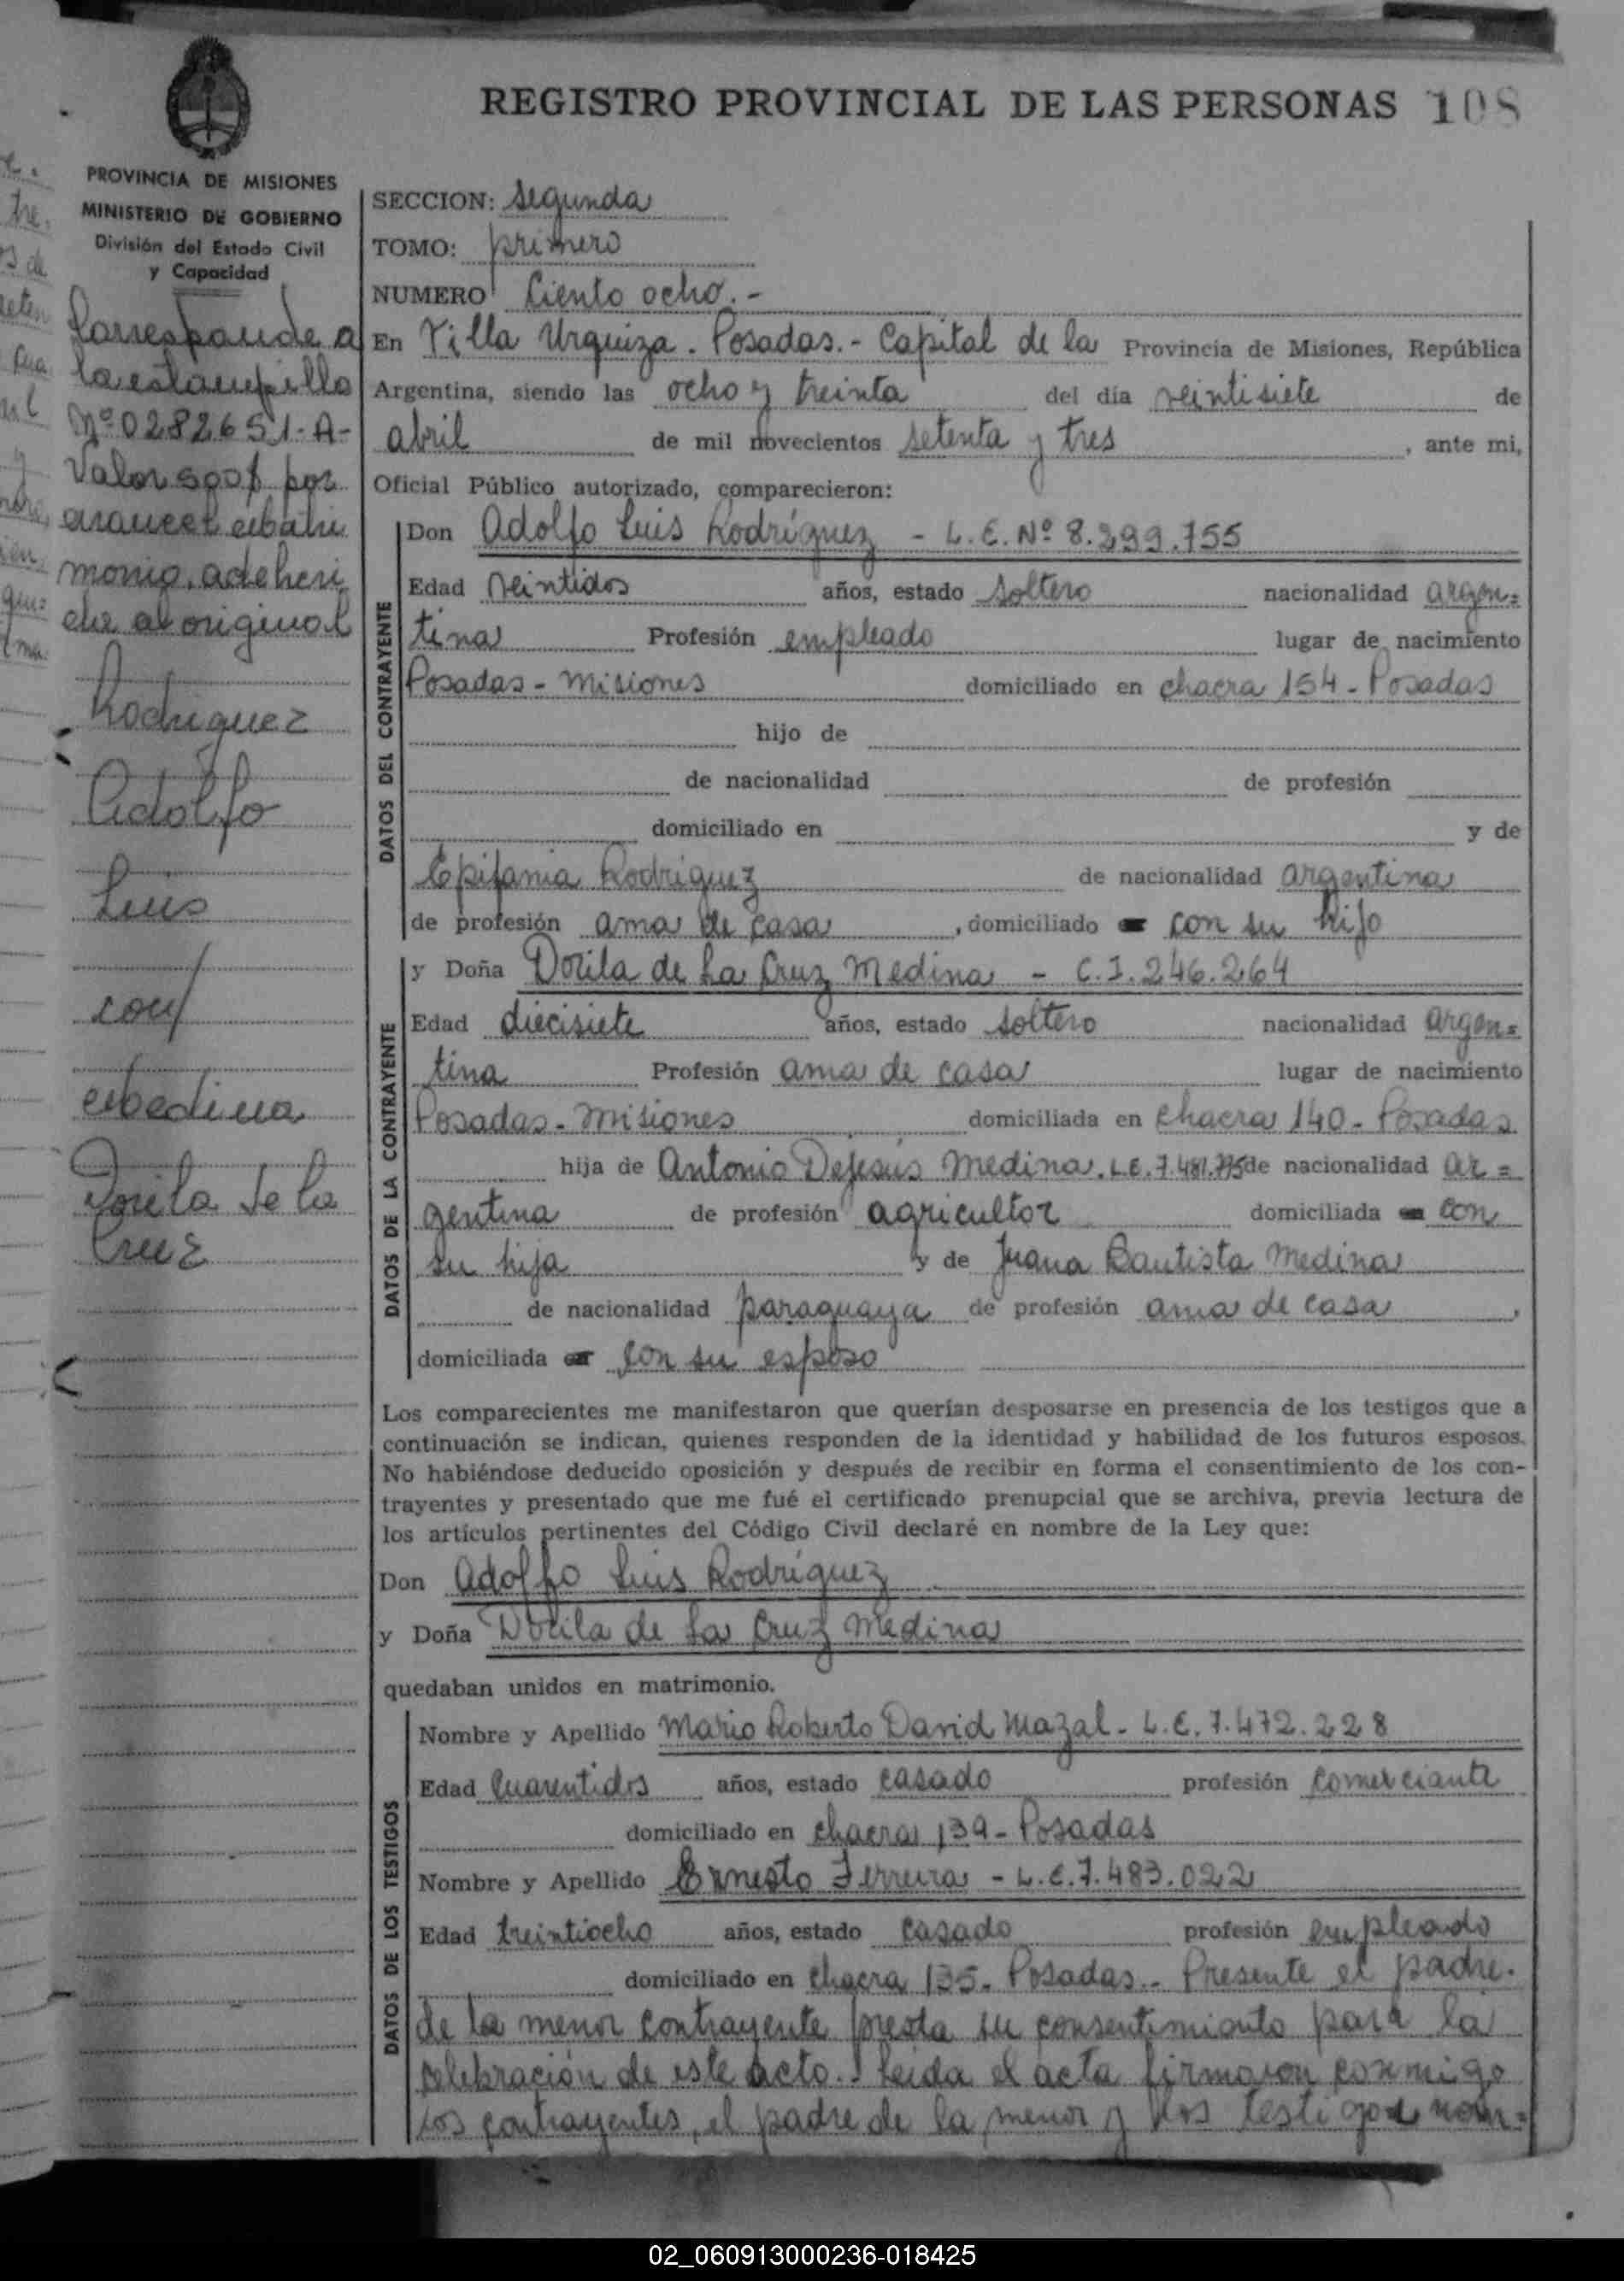 REGISTRO PROVINCIAL DE LAS PERSONAS 108
PROVINCIA DE MISIONES
MINISTERIO DE GOBIERNO
División del Estado Civil
y Capacidad
Corresponde a
la estampilla
Nº 0282651-A-
Valor 500$ por
arancel Matri
monio. adheri
do al original
Rodriguez
Adolfo
Luis
con/
Medina
Dorila de la
Cruz
SECCION: segunda
TOMO: primero
NUMERO Ciento ocho.-
En Villa Urquiza. Posadas.- Capital de la Provincia de Misiones, República
Argentina, siendo las ocho y treinta del día veintisiete de
abril de mil novecientos setenta y tres, ante mi,
Oficial Público autorizado, comparecieron:
DATOS DEL CONTRAYENTE
Don Adolfo Luis Rodríguez - L.E. Nº 8.299.755
Edad veintidos años, estado soltero nacionalidad argen=
tina Profesión empleado lugar de nacimiento
Posadas - Misiones domiciliado en chacra 154 - Posadas
hijo de
de nacionalidad de profesión
domiciliado en y de
Epifania Rodríguez de nacionalidad argentina
de profesión ama de casa, domiciliado con su hijo
DATOS DE LA CONTRAYENTE
y Doña Dorila de La Cruz Medina - C.I. 246.264
Edad diecisiete años, estado soltero nacionalidad argen=
tina Profesión ama de casa lugar de nacimiento
Posadas - Misiones domiciliada en chacra 140 - Posadas
hija de Antonio Dejesús Medina. L.E. 7.481.775 de nacionalidad ar=
gentina de profesión agricultor domiciliada con
su hija y de Juana Bautista Medina
de nacionalidad paraguaya de profesión ama de casa,
domiciliada con su esposo
Los comparecientes me manifestaron que querían desposarse en presencia de los testigos que a
continuación se indican, quienes responden de la identidad y habilidad de los futuros esposos.
No habiéndose deducido oposición y después de recibir en forma el consentimiento de los con-
trayentes y presentado que me fué el certificado prenupcial que se archiva, previa lectura de
los artículos pertinentes del Código Civil declaré en nombre de la Ley que:
Don Adolfo Luis Rodríguez
y Doña Dorila de La Cruz Medina
quedaban unidos en matrimonio.
DATOS DE LOS TESTIGOS
Nombre y Apellido Mario Roberto David Mazal - L.E. 7.472.228
Edad Cuarentidos años, estado casado profesión comerciante
domiciliado en chacra 139 - Posadas
Nombre y Apellido Ernesto Ferreira - L.E. 7.483.022
Edad treintiocho años, estado casado profesión empleado
domiciliado en chacra 135 - Posadas.- Presente el padre
de la menor contrayente presta su consentimiento para la
celebración de este acto. Leida el acta firmaron conmigo
los contrayentes, el padre de la menor y los testigos nom=
02_060913000236-018425